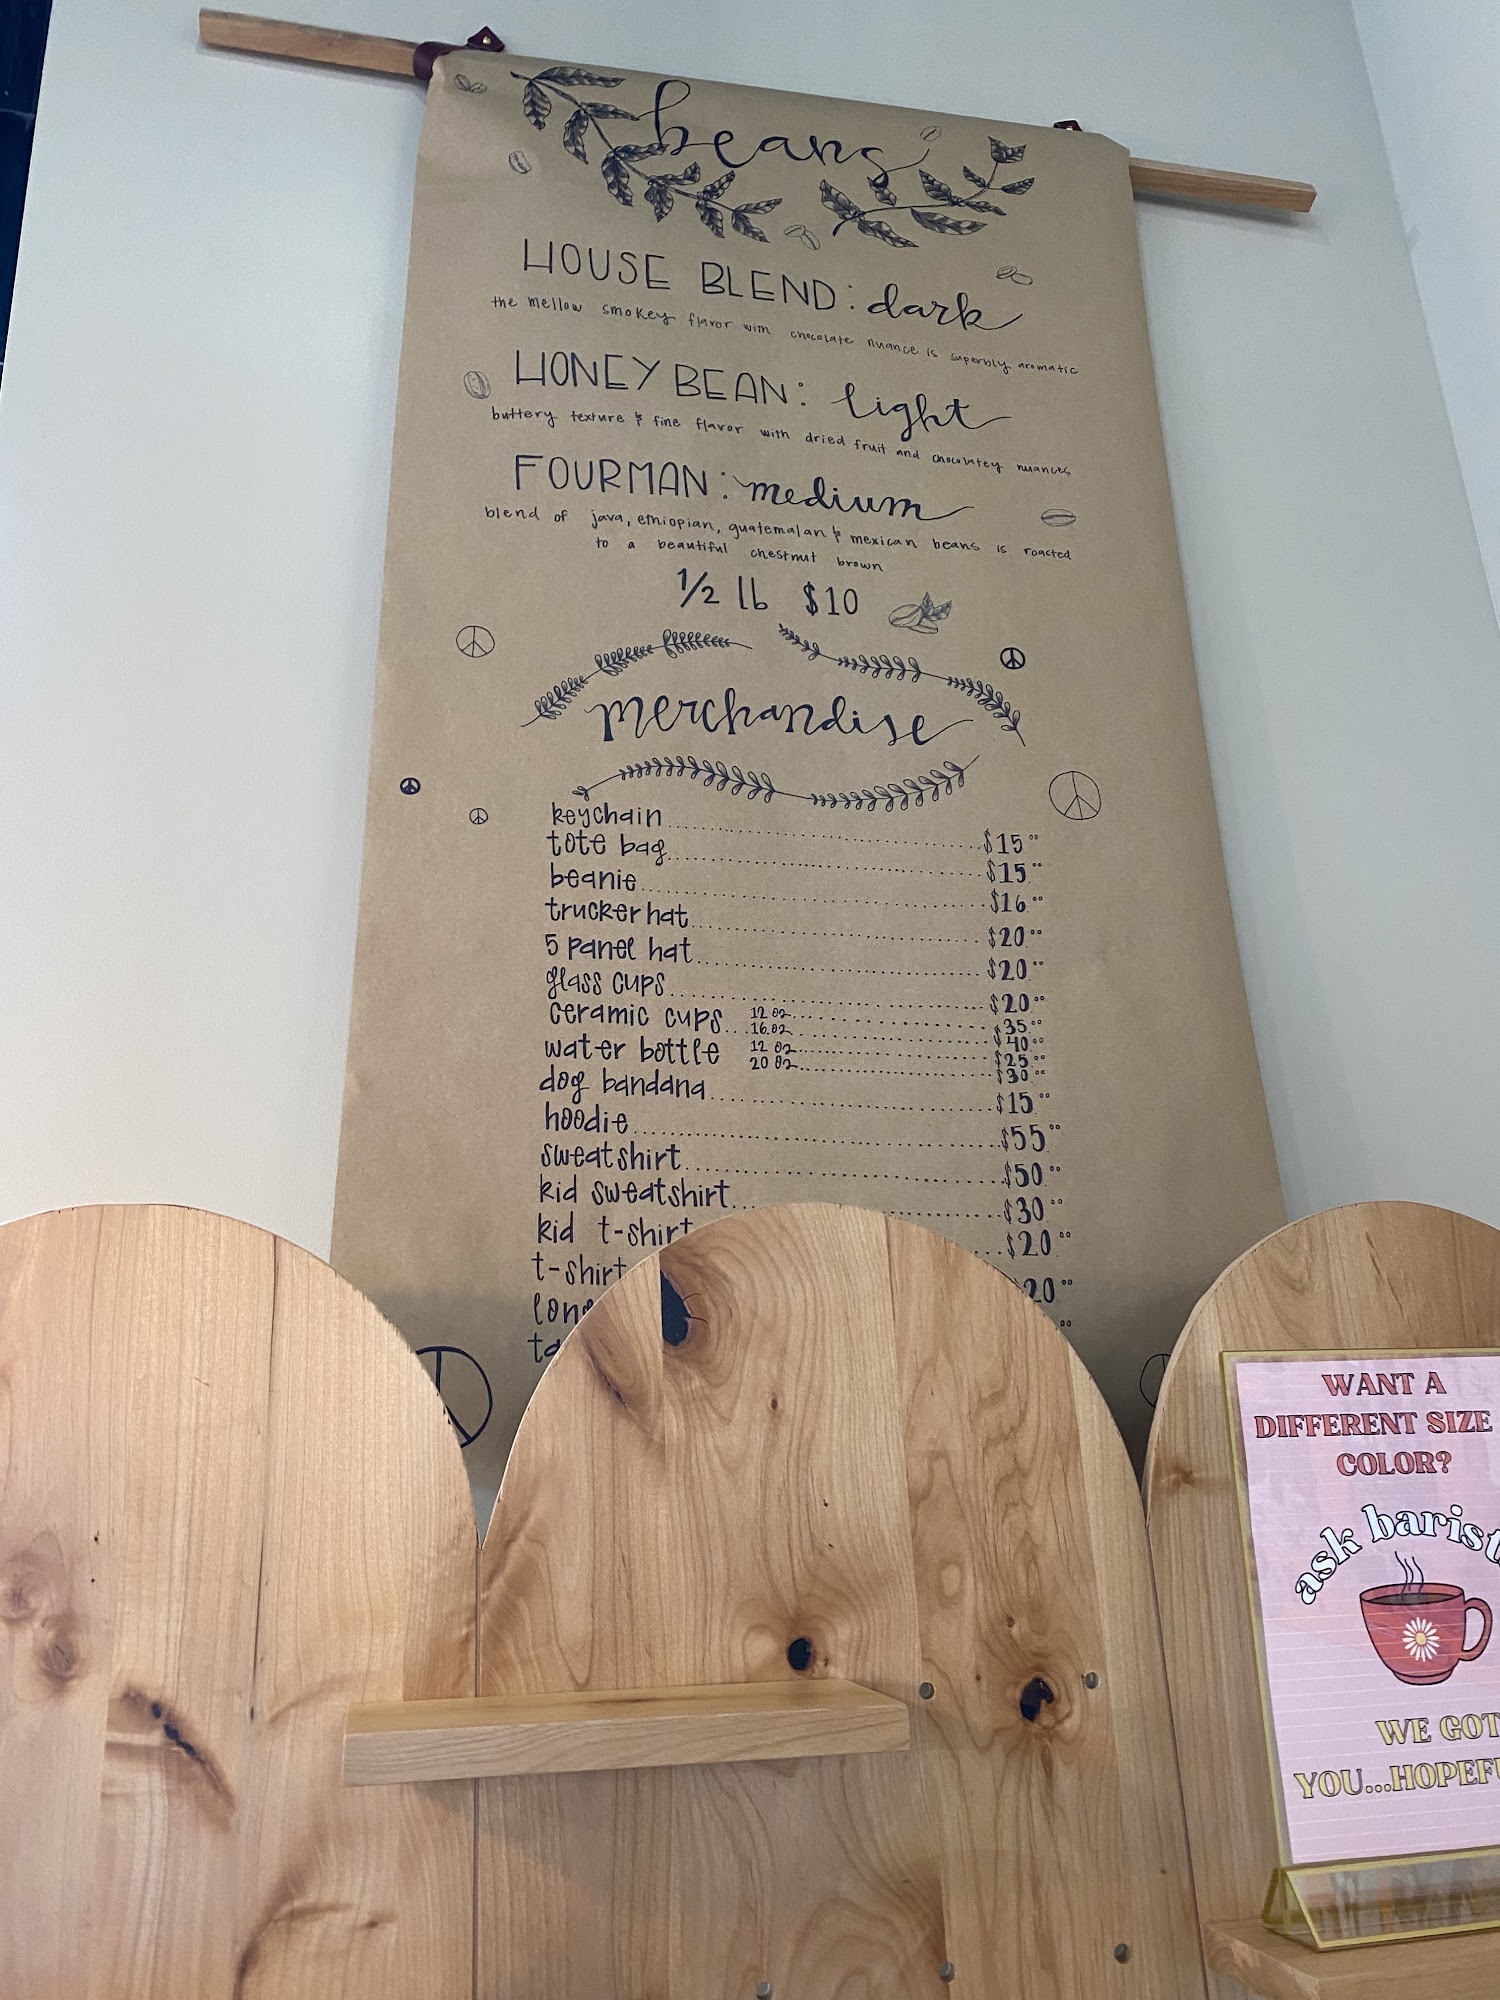 beans
HOUSE BLEND: dark
the mellow smokey flavor with chocolate nuance is superbly aromatic
HONEY BEAN: light
buttery texture & fine flavor with dried fruit and chocolatey nuances
FOURMAN: medium
blend of java, ethiopian, guatemalan & mexican beans is roasted
to a beautiful chestnut brown
1/2 lb $10
merchandise
keychain........................$15.00
tote bag........................$15.00
beanie........................$16.00
trucker hat........................$20.00
5 panel hat........................$20.00
glass cups........................$20.00
ceramic cups... 12 oz........................$35.00
16 oz........................$40.00
water bottle 12 oz........................$25.00
20 oz........................$30.00
dog bandana........................$15.00
hoodie........................$55.00
sweatshirt........................$50.00
kid sweatshirt........................$30.00
kid t-shirt...$20.00
t-shirt 20.00
WANT A
DIFFERENT SIZE
COLOR?
ask
WE GOT
YOU...